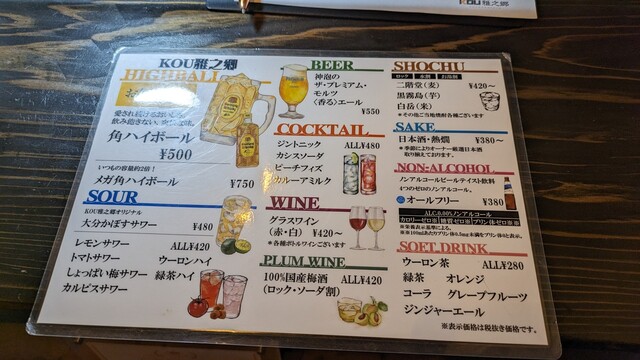 KOU雅之郷
KOU雅之郷
HIGHBALL
愛され続けるおいしさ
角ハイボール
¥500
いつもの容量約2倍!
メガ角ハイボール ¥750
SOUR
KOU雅之郷オリジナル
大分かぼすサワー ¥480
レモンサワー ALL¥420
トマトサワー ウーロンハイ
しょっぱい梅サワー 緑茶ハイ
カルピスサワー
BEER
神泡の
ザ・プレミアム・
モルツ
〈香る〉エール
¥550
COCKTAIL
ジントニック ALL¥480
カシスソーダ
ピーチフィズ
カルーアミルク
WINE
グラスワイン
(赤・白) ¥420~
*各種ボトルワインございます
PLUM WINE
100%国産梅酒 ALL¥420
(ロック・ソーダ割)
SHOCHU
ロック 水割 お湯割
二階堂(麦) ¥420~
黒霧島(芋)
白岳(米)
*その他ご当地焼酎各種ございます
SAKE
日本酒・熱燗 ¥380~
*季節によりオーナー厳選日本酒
取り揃えております。
NON-ALCOHOL
ノンアルコールビールテイスト飲料
4つのゼロのノンアルコール。
オールフリー ¥380
ALC.0.00%ノンアルコール
カロリーゼロ※ 糖質ゼロ※ プリン体ゼロ※※
※栄養表示基準による。
※※100ml当たりプリン体0.5mg未満をプリン体0と表示。
SOFT DRINK
ウーロン茶 ALL¥280
緑茶 オレンジ
コーラ グレープフルーツ
ジンジャーエール
※表示価格は税抜き価格です。